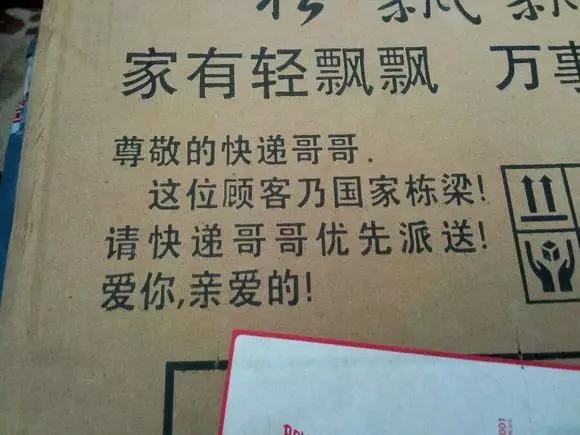 轻飘飘
家有轻飘飘 万事
尊敬的快递哥哥.
这位顾客乃国家栋梁!
请快递哥哥优先派送!
爱你,亲爱的!